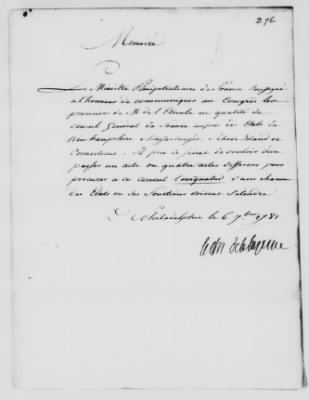 296
Memoire
Le Ministre Plenipotentiaire de France soussigné
a l'honneur de communiquer au Congrès les
provisions de M. de l'Etombe en qualité de
consul General de France auprès des Etats de
New hampshire Massachusset Rhode Island et
Connecticut. Il prie ce senat de vouloir bien
passer un acte ou quatre actes differens pour
procurer à ce consul l'exequatur dans chacun
des Etats où ses fonctions doivent s'etendre
A Philadelphie le 6 7bre 1781.
le chr de la luzerne